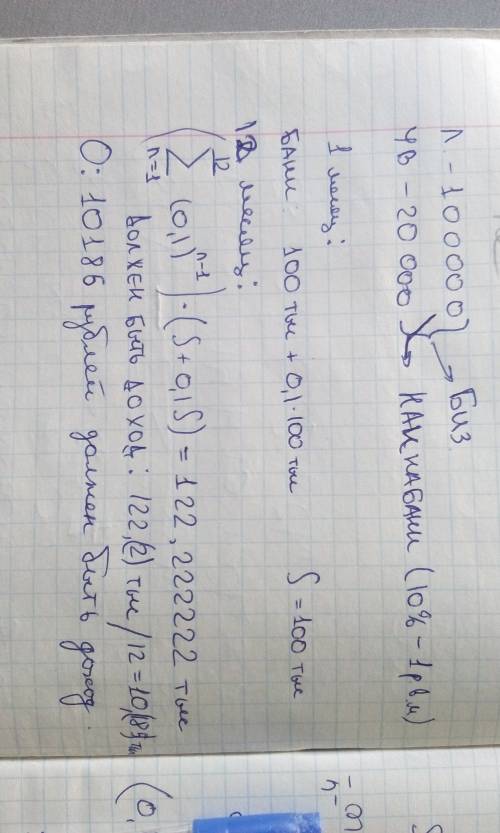 Л. - 100000 } → БИЗ
ЧВ - 20 000 } → КАННАБАНИ (10% - 1 р в м)
1 месяц:
БАНИ: 100 тыс + 0,1·100 тыс S = 100 тыс
12 месяц:
(∑ⁿ⁼¹¹² (0,1)ⁿ⁻¹)·(S + 0,1S) = 122,222222 тыс
ДОЛЖЕН БЫТЬ ДОХОД: 122,(2) тыс / 12 = 10,(185) тыс
О: 10186 рублей должен быть доход.
(0,